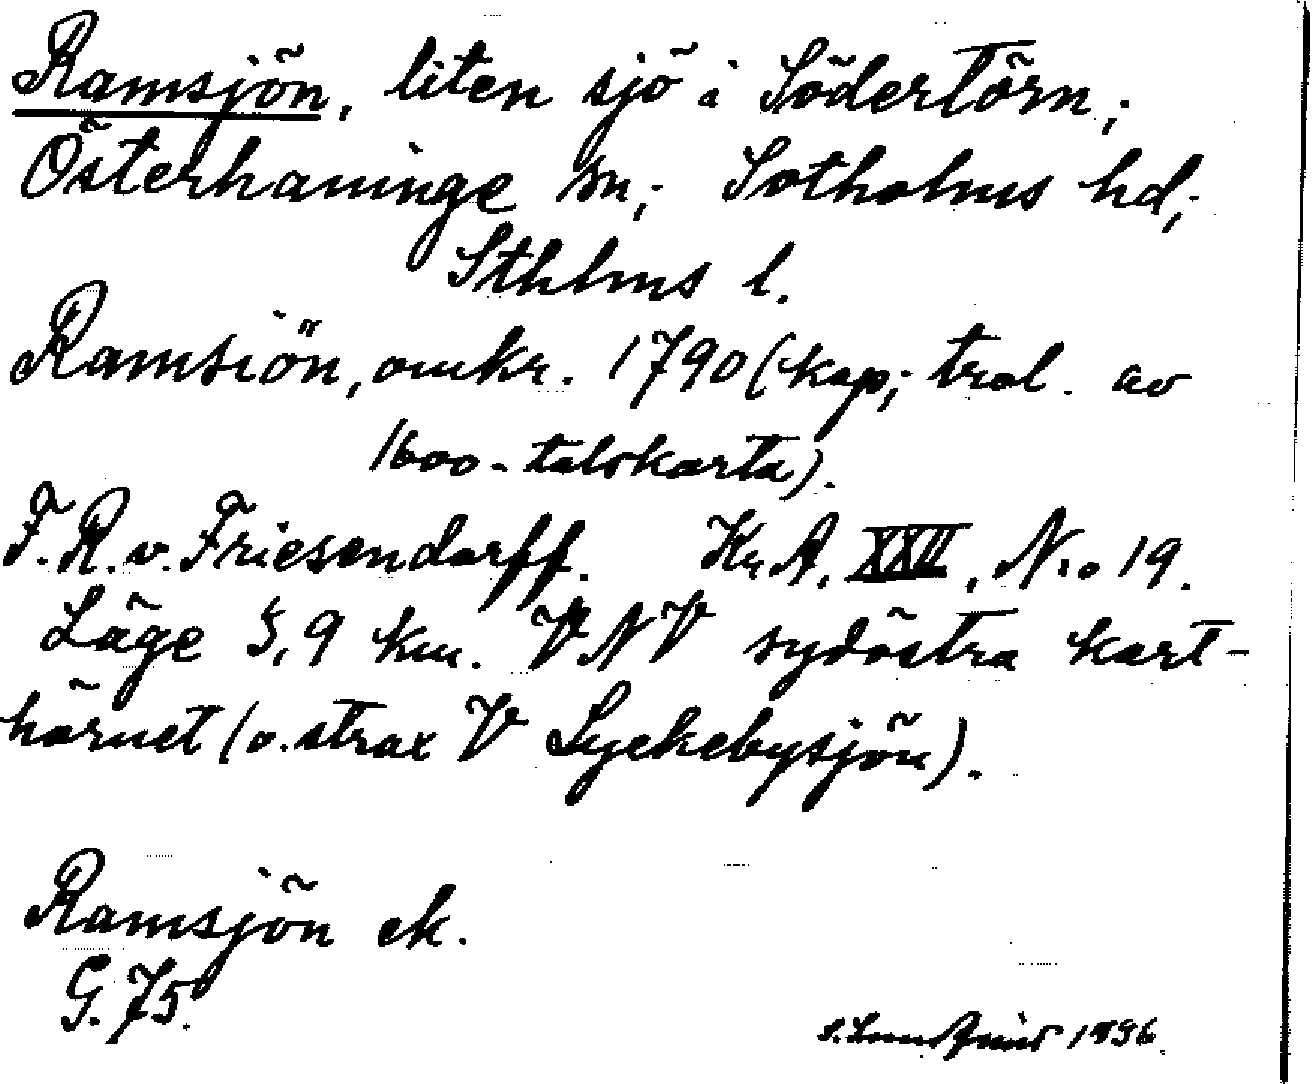 Ramsjön, liten sjö i Södertörn,
Österhaninge sn, Sotholms hd,
Sthlms l.
Ramsiön, omkr. 1790 (kop; trol. av
1600-talskarta).
F. R. v. Friesendorff. Kr. A. XXII, N:o 19.
Läge 5,9 km. VNV sydöstra kart-
hörnet (o. strax V Lyckebysjön).
Ramsjön ek.
G. 75.
1936